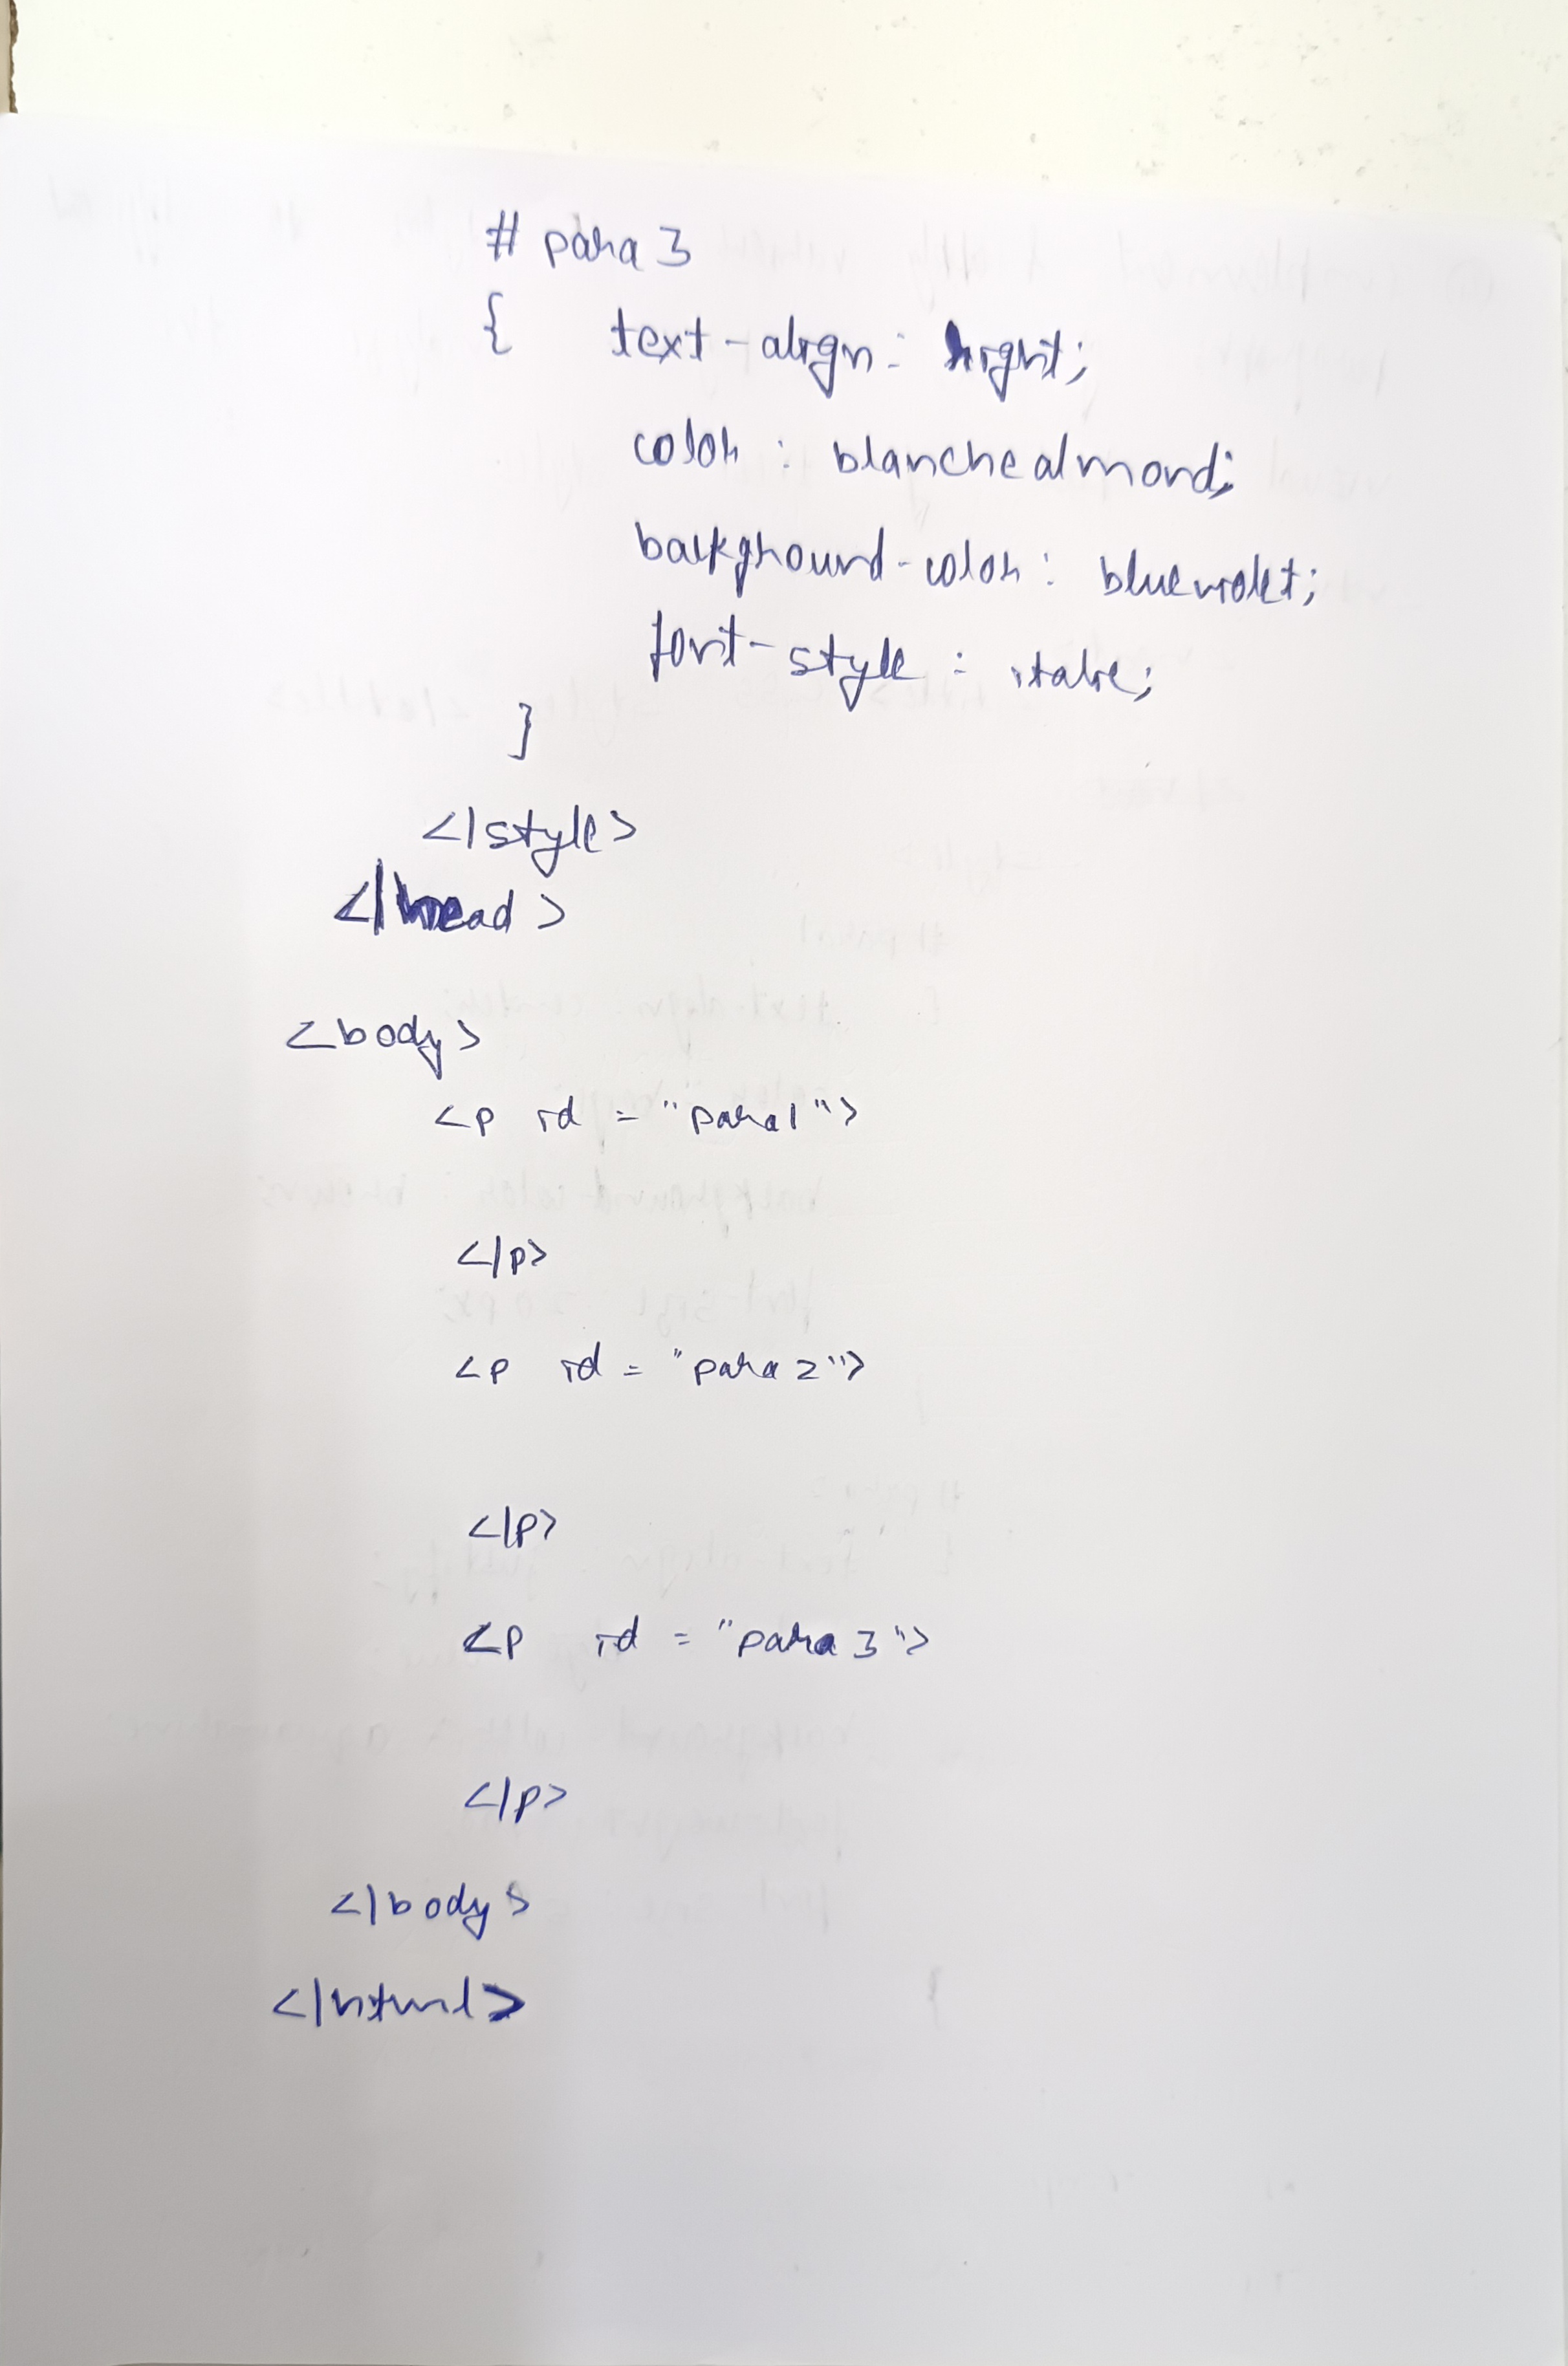 # para 3
{ text-align: right;
color : blanchealmond;
background-color : blueviolet;
font-style : italic;
}
</style>
</head>
<body>
<p id = "para1">
</p>
<p id = "para 2">
</p>
<p id = "para 3">
</p>
</body>
</html>